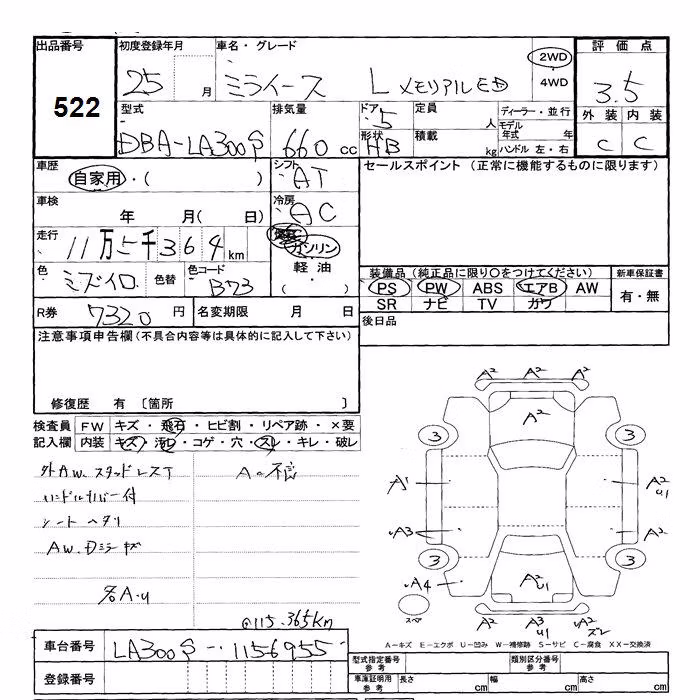 出品番号 初度登録年月 車名・グレード 2WD 評価点
522 25 月 ミライース L メモリアルED 4WD 3.5
型式 排気量 ドア 5 定員 人 ディーラー・並行 外装 内装
DBA-LA300S 660 cc 形状 HB 積載 kg モデル年式 年 C C
ハンドル 左・右
車歴 シフト セールスポイント (正常に機能するものに限ります)
自家用・( ) AT
車検 年 月( 日) 冷房 AC
走行 11万5千364km ガソリン
色 ミズイロ 色替 色コード B73 軽油 ( )
装備品(純正品に限り○をつけてください) 新車保証書
PS PW ABS エアB AW 有・無
SR ナビ TV カワ
R券 7320 円 名変期限 月 日 後日品
注意事項申告欄(不具合内容等は具体的に記入して下さい)
修復歴 有 〔箇所 〕
検査員 FW キズ・飛石・ヒビ割・リペア跡・×要
記入欄 内装 キズ・汚レ・コゲ・穴・スレ・キレ・破レ
外AW.スタッドレスT
ハンドルカバー付
シートヘタリ
AW.Dミラーキズ
各A.U
@115.365km
A2 A2 A2
A2
3 3
A1 A2 U1
A3 A2
3 3
A4 A2 U1
スペア A2 A3 U1 A2 ズレ
A-キズ E-エクボ U-凹み W-補修跡 S-サビ C-腐食 XX-交換済
車台番号 LA300S-1156955
登録番号
型式指定番号 参考 類別区分番号 参考
車庫証明用 参考 長さ cm 幅 cm 高さ cm